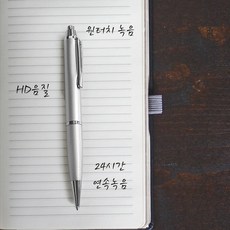 원터치 녹음
HD음질
24시간
연속녹음